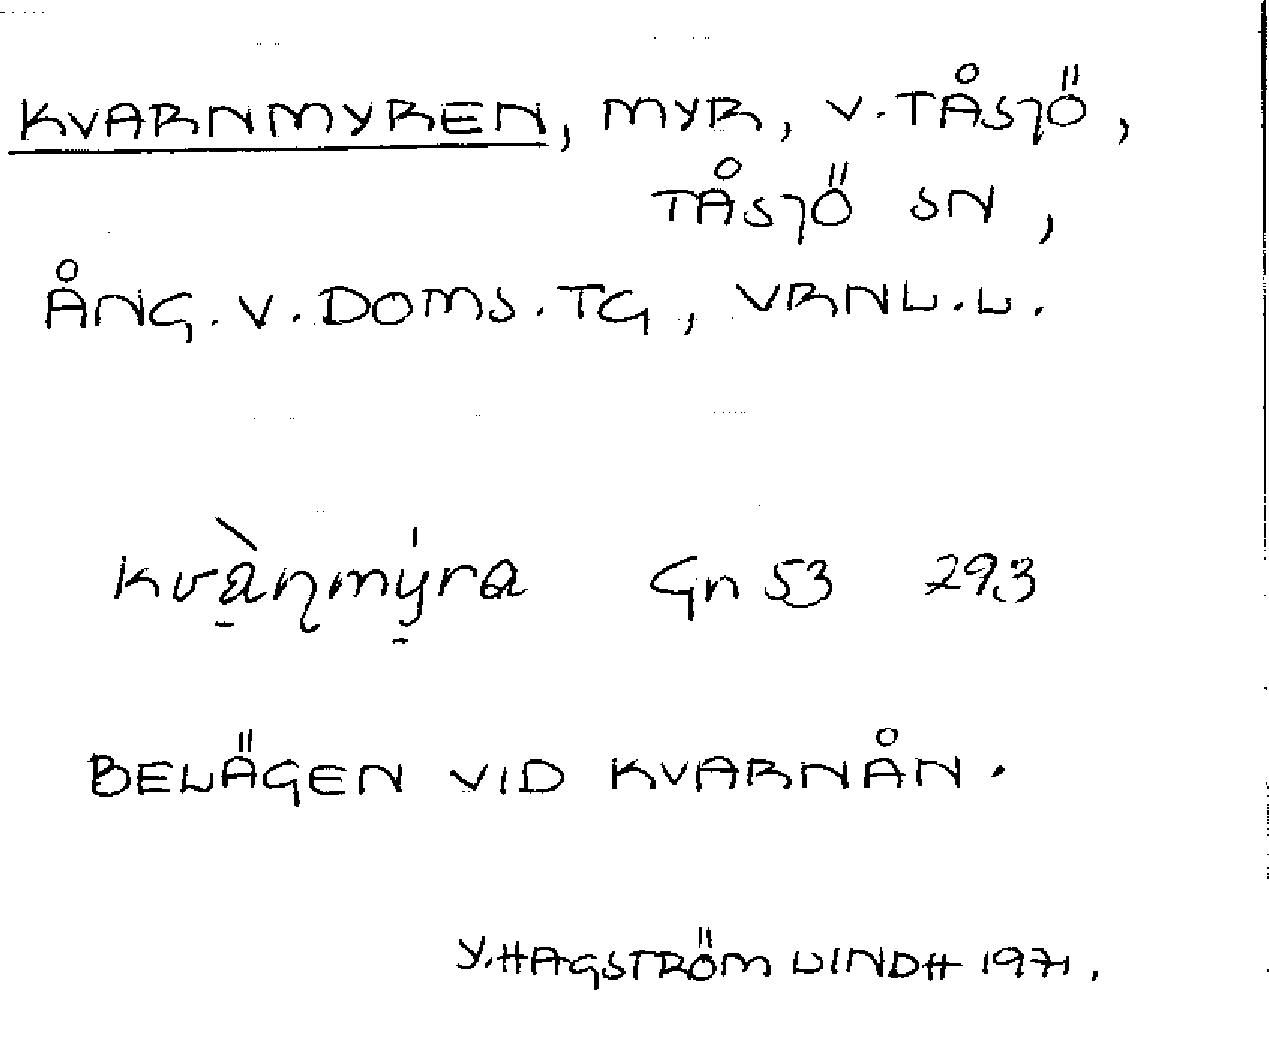 KVARNMYREN, MYR, V. TÅSJÖ,
TÅSJÖ SN,
ÅNG. V. DOMS. TG, VRNL. L.
kvànmýra Gn 53 29,3
BELÄGEN VID KVARNÅN.
Y. HAGSTRÖM LINDH 1971.